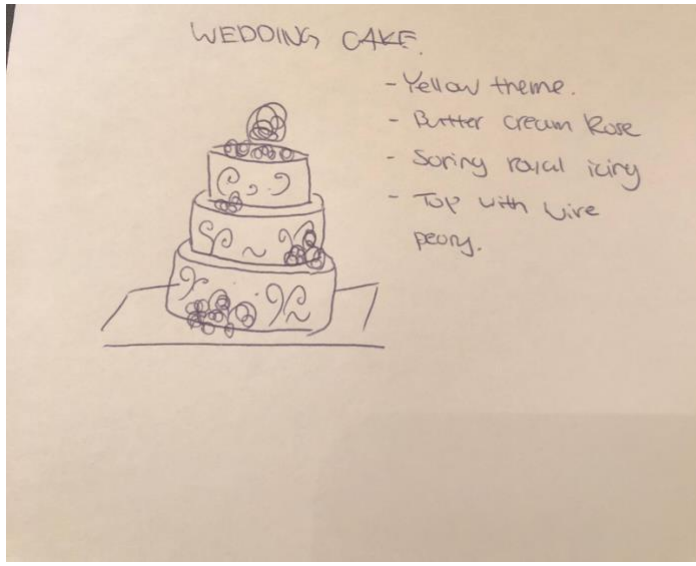 WEDDING CAKE.
- Yellow theme.
- Butter cream Rose
- Soring royal icing
- Top with wire
peony.